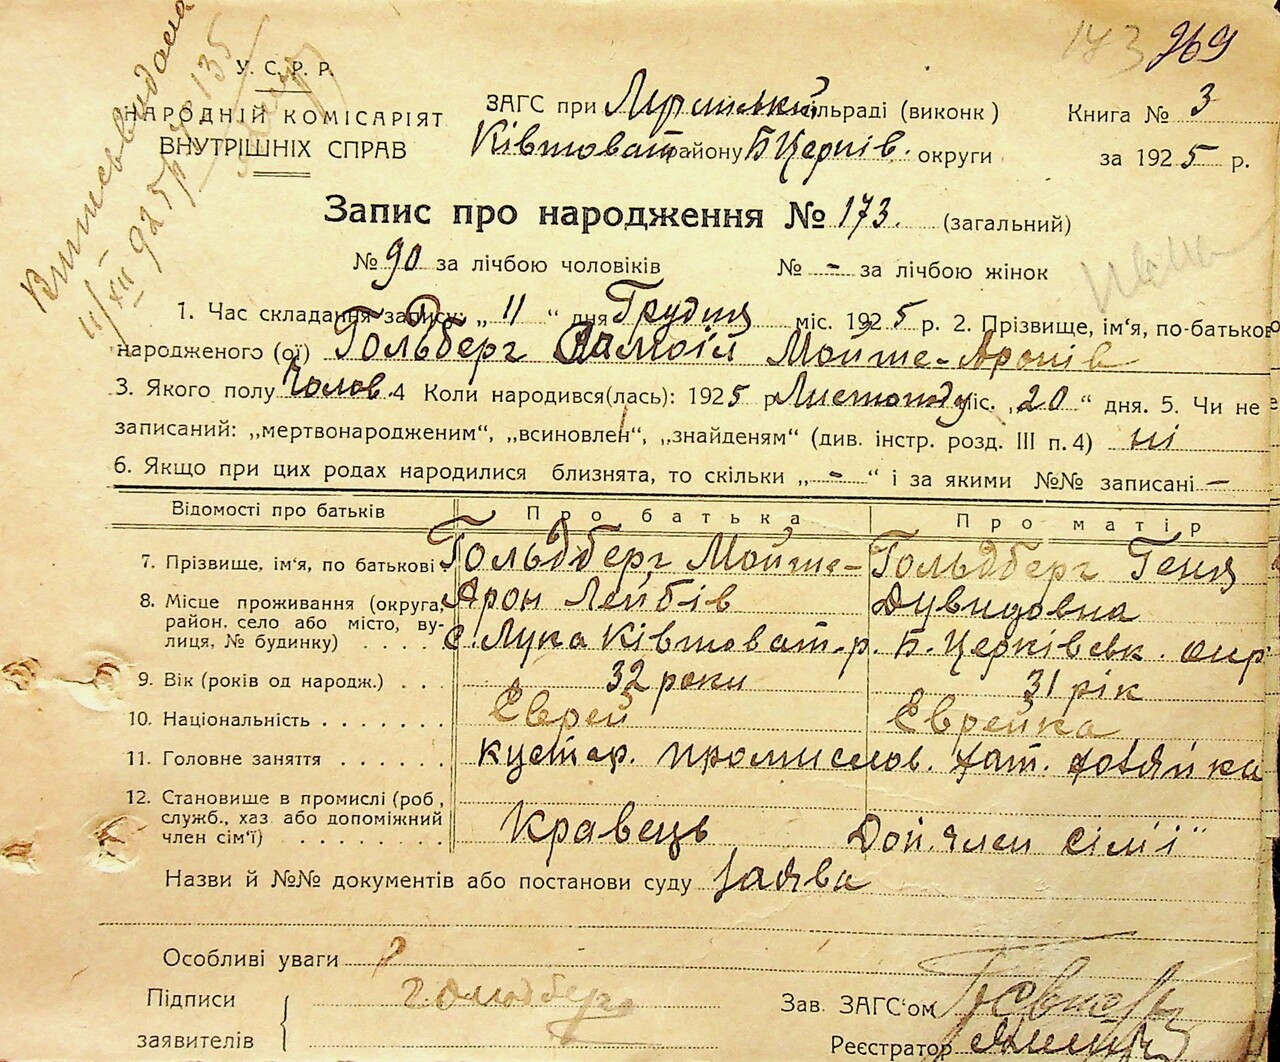 173 269
У. С. Р. Р.
НАРОДНІЙ КОМІСАРІЯТ
ВНУТРІШНІХ СПРАВ
Вишеввидана
11/XII 925 р. 135
ЗАГС при сільраді (виконк)
Ківшоват. району Б Церків. округи
Книга № 3
за 1925 р.
Запис про народження № 173. (загальний)
№ 90 за лічбою чоловіків № - за лічбою жінок
1. Час складання запису: „ 11 “ дня Грудня міс. 1925 р. 2. Прізвище, ім'я, по-батькові
народженого (ої) Гольдберг Самоіл Мойше-Аронів
3. Якого полу Чолов. 4 Коли народився(лась): 1925 р Листопаду міс. „20“ дня. 5. Чи не
записаний: „мертвонародженим“, „всиновлен“, „знайденям“ (див. інстр. розд. III п. 4) ні
6. Якщо при цих родах народилися близнята, то скільки „ - “ і за якими №№ записані —
Відомості про батьків Про батька Про матір
7. Прізвище, ім'я, по батькові Гольдберг Мойше- Гольдберг Геня
Арон Лейбів Дувидовна
8. Місце проживання (округа, район, село або місто, вулиця, № будинку) . . . . с. Лука Ківшоват. р. Б. Церківськ. окр
9. Вік (років од народж.) . . . 32 роки 31 рік
10. Національність . . . . . . . Еврей Еврейка
11. Головне заняття . . . . . . кустар. промислов. хат. хозяйка
12. Становище в промислі (роб, служб., хаз або допоміжний член сім'ї) . . . . . . . . . Кравець Доп. член сімʼї
Назви й №№ документів або постанови суду Заява
Особливі уваги
Підписи
заявителів
Гольдберг
Зав. ЗАГС'ом
Реєстратор